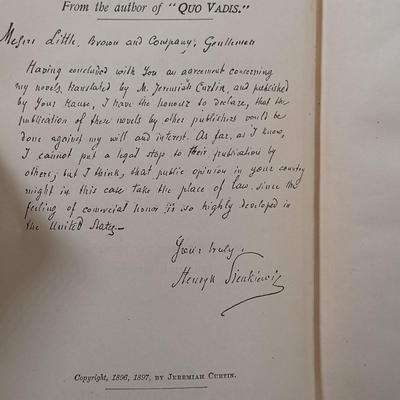 From the author of "QUO VADIS."
Messrs Little, Brown and Company, Gentlemen
Having concluded with You an agreement concerning
my novels, translated by M. Jeremiah Curtin, and published
by Your House, I have the honour to declare, that the
publication of these novels by other publishers would be
done against my will and interest. As far, as I know,
I cannot put a legal stop to their publication by
others; but I think, that public opinion in your country
might in this case take the place of law, since the
feeling of comercial honor is so highly developed in
the United States.—
Yours truly,
Henryk Sienkiewicz
Copyright, 1896, 1897, BY JEREMIAH CURTIN.